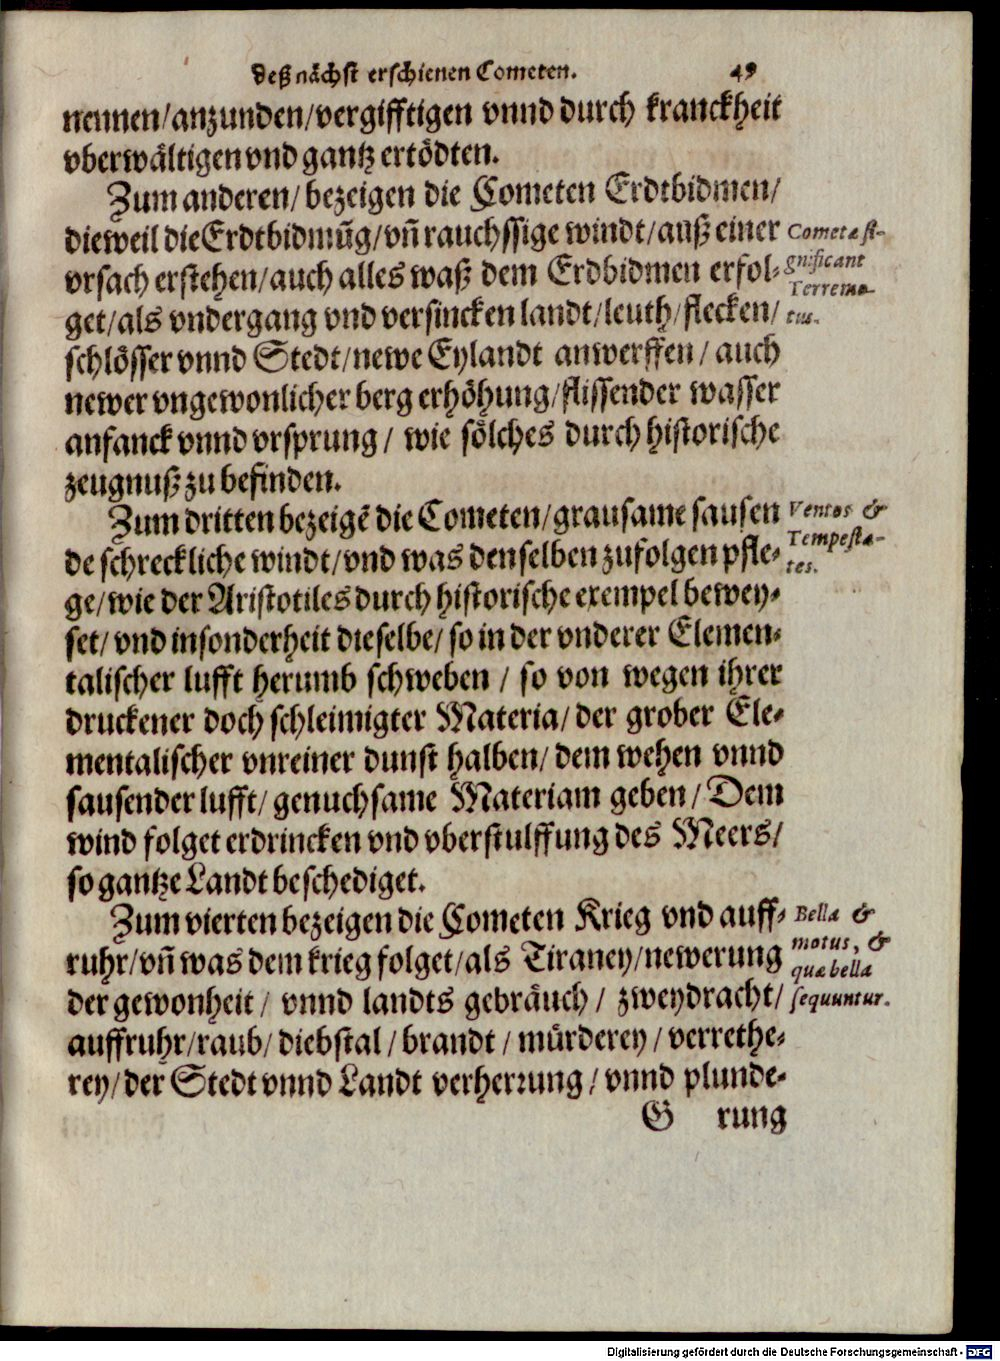 deß nächst erschienen Cometen. 49
nennen/anzunden/vergifftigen vnnd durch kranckheit
vberwältigen vnd gantz ertödten.
Zum anderen/ bezeigen die Cometen Erdtbidmen/
dieweil die Erdtbidmũg/vñ rauchssige windt/auß einer
vrsach erstehen/auch alles waß dem Erdbidmen erfol-
get/als vndergang vnd versincken landt/leuth/flecken/
schlösser vnnd Stedt/newe Eylandt anwerffen/ auch
newer vngewonlicher berg erhöhung/flissender wasser
anfanck vnnd vrsprung/ wie sölches durch historische
zeugnuß zu befinden.
Cometæ si-
gnificant
Terremo-
tus.
Zum dritten bezeigẽ die Cometen/grausame sausen
de schreckliche windt/vnd was denselben zufolgen pfle-
ge/wie der Aristotiles durch historische exempel bewey-
set/ vnd insonderheit dieselbe/ so in der vnderer Elemen-
talischer lufft herumb schweben / so von wegen ihrer
druckener doch schleimigter Materia/ der grober Ele-
mentalischer vnreiner dunst halben/ dem wehen vnnd
sausender lufft/ genuchsame Materiam geben/ Dem
wind folget erdrincken vnd vberstulffung des Meers/
so gantze Landt beschediget.
Ventos &
Tempesta-
tes.
Zum vierten bezeigen die Cometen Krieg vnd auff-
ruhr/vñ was dem krieg folget/als Tiraney/newerung
der gewonheit/ vnnd landts gebräuch/ zweydracht/
auffruhr/raub/ diebstal/ brandt / mürderey/ verrethe-
rey/der Stedt vnnd Landt verherrung/ vnnd plunde-
Bella &
motus, &
quæ bella
sequuntur.
G rung
Digitalisierung gefördert durch die Deutsche Forschungsgemeinschaft - DFG